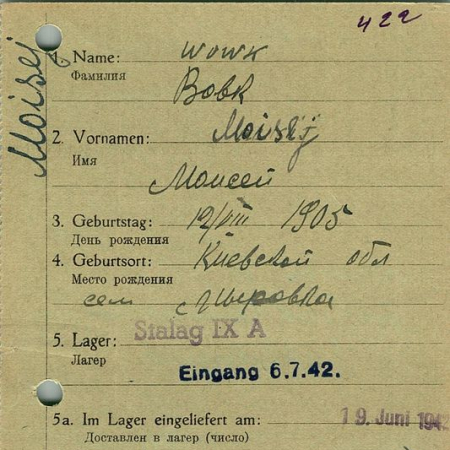 422
Moisej
1. Name: Wowk
Фамилия
Вовк
2. Vornamen: Moisej
Имя
Моисей
3. Geburtstag: 12/VIII 1905
День рождения
4. Geburtsort: Киевской обл
Место рождения
сел
5. Lager: Stalag IX A
Лагер
Eingang 6.7.42.
5a. Im Lager eingeliefert am: 19. Juni 1942
Доставлен в лагер (число)